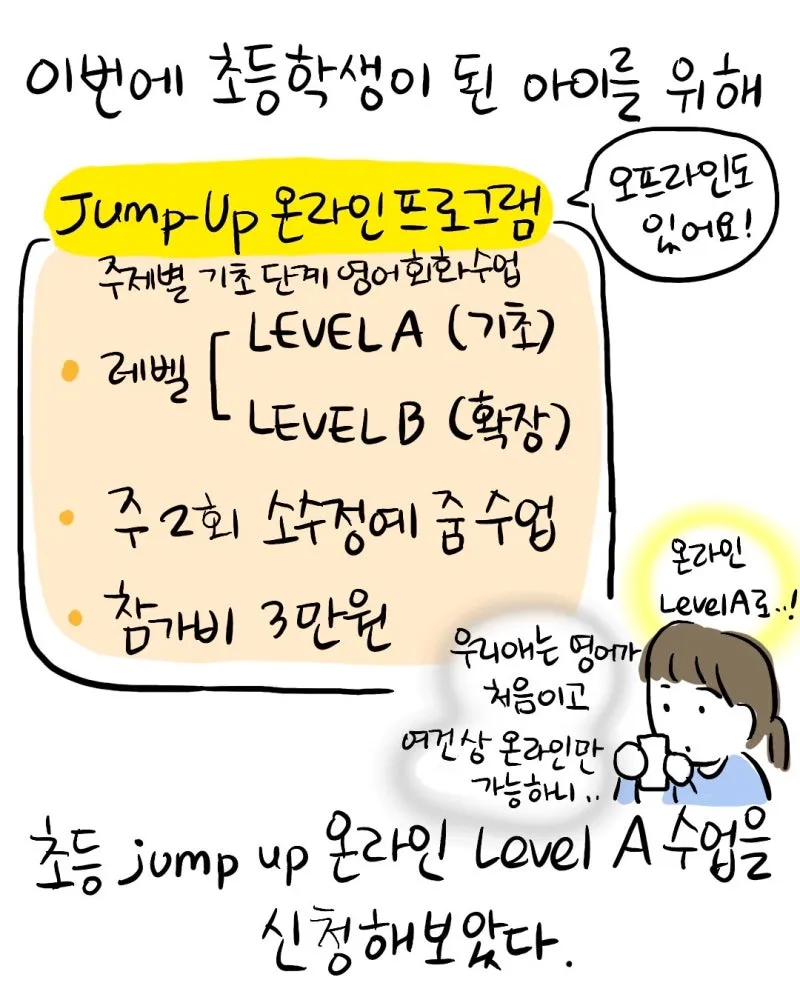 이번에 초등학생이 된 아이를 위해
Jump-Up 온라인프로그램
오프라인도
있어요!
주제별 기초단계 영어회화수업
• 레벨
LEVEL A (기초)
LEVEL B (확장)
• 주 2회 소수정예 줌수업
• 참가비 3만원
온라인
Level A로..!
우리애는 영어가
처음이고
여건상 온라인만
가능하니..
초등 jump up 온라인 Level A 수업을
신청해보았다.